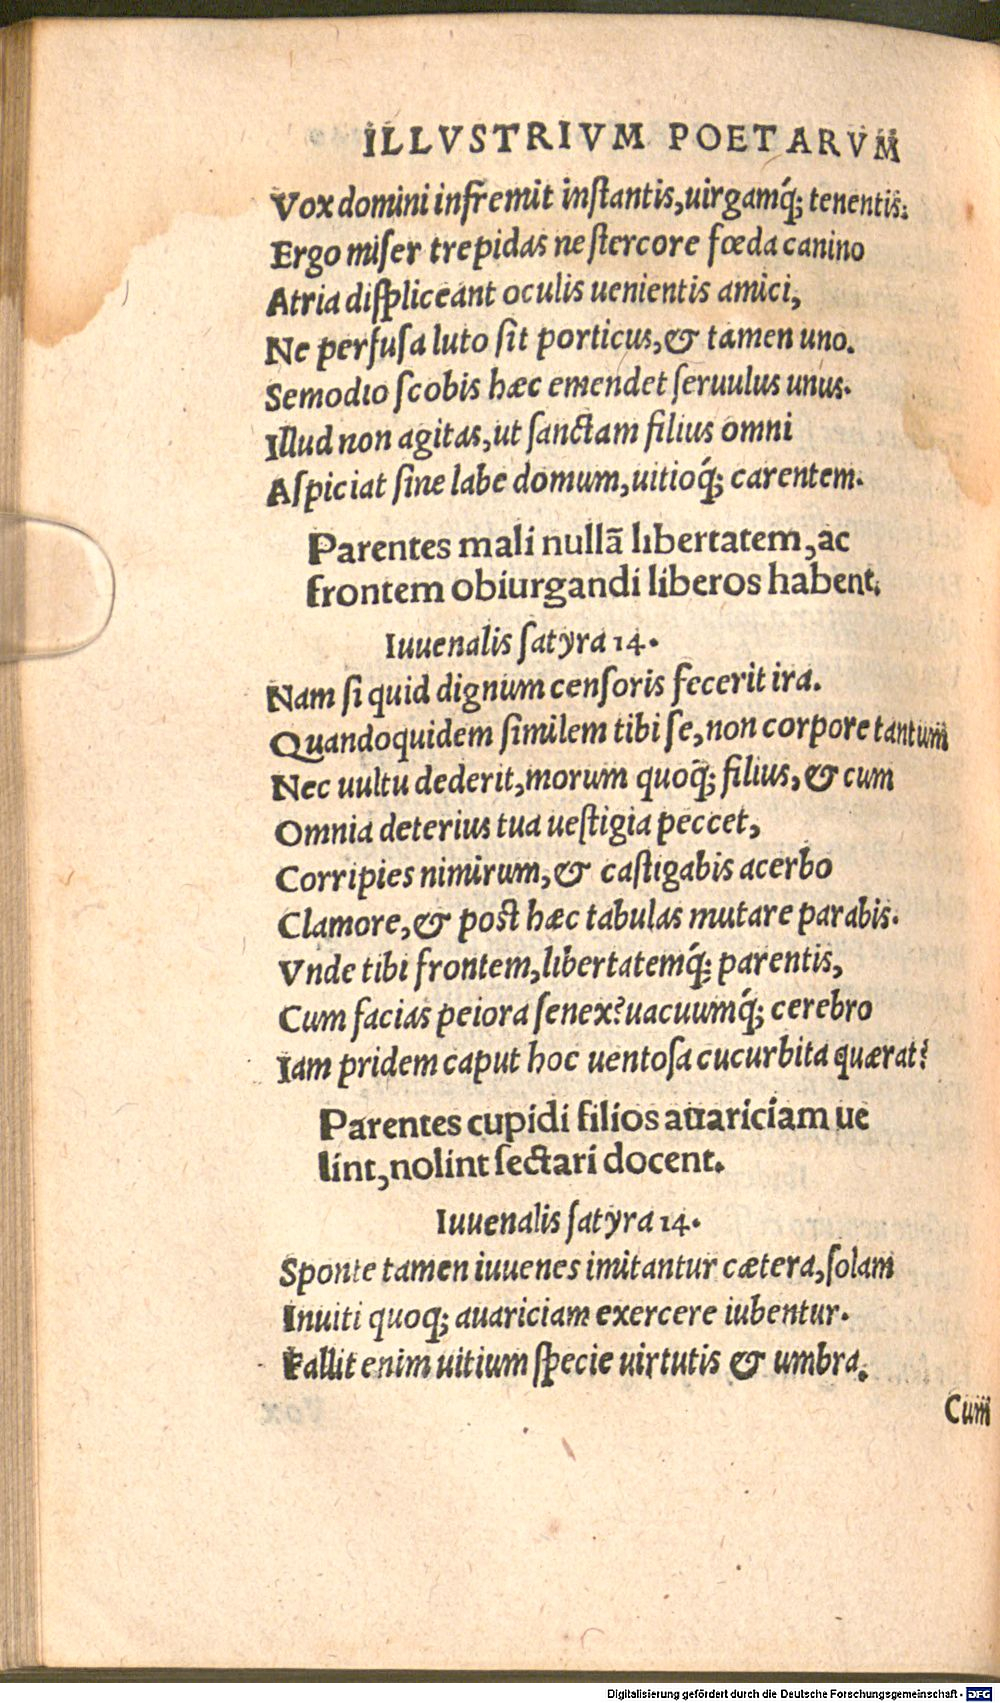 ILLVSTRIVM POETARVM
Vox domini infremit instantis,uirgamq́; tenentis:
Ergo miser trepidas ne stercore fœda canino
Atria displiceant oculis uenientis amici,
Ne perfusa luto sit porticus,& tamen uno.
Semodio scobis hæc emendet seruulus unus.
Illud non agitas,ut sanctam filius omni
Aspiciat sine labe domum,uitioq́; carentem.
Parentes mali nullā libertatem,ac
frontem obiurgandi liberos habent.
Iuuenalis satyra 14.
Nam si quid dignum censoris fecerit ira.
Quandoquidem similem tibi se,non corpore tantum
Nec uultu dederit,morum quoq̃; filius,& cum
Omnia deterius tua uestigia peccet,
Corripies nimirum,& castigabis acerbo
Clamore,& post hæc tabulas mutare parabis.
Vnde tibi frontem,libertatemq́; parentis,
Cum facias peiora senex?uacuumq́; cerebro
Iam pridem caput hoc uentosa cucurbita quærat?
Parentes cupidi filios auariciam ue
lint,nolint sectari docent.
Iuuenalis satyra 14.
Sponte tamen iuuenes imitantur cætera,solam
Inuiti quoq; auariciam exercere iubentur.
Fallit enim uitium specie uirtutis & umbra.
Cum
Digitalisierung gefördert durch die Deutsche Forschungsgemeinschaft - DFG